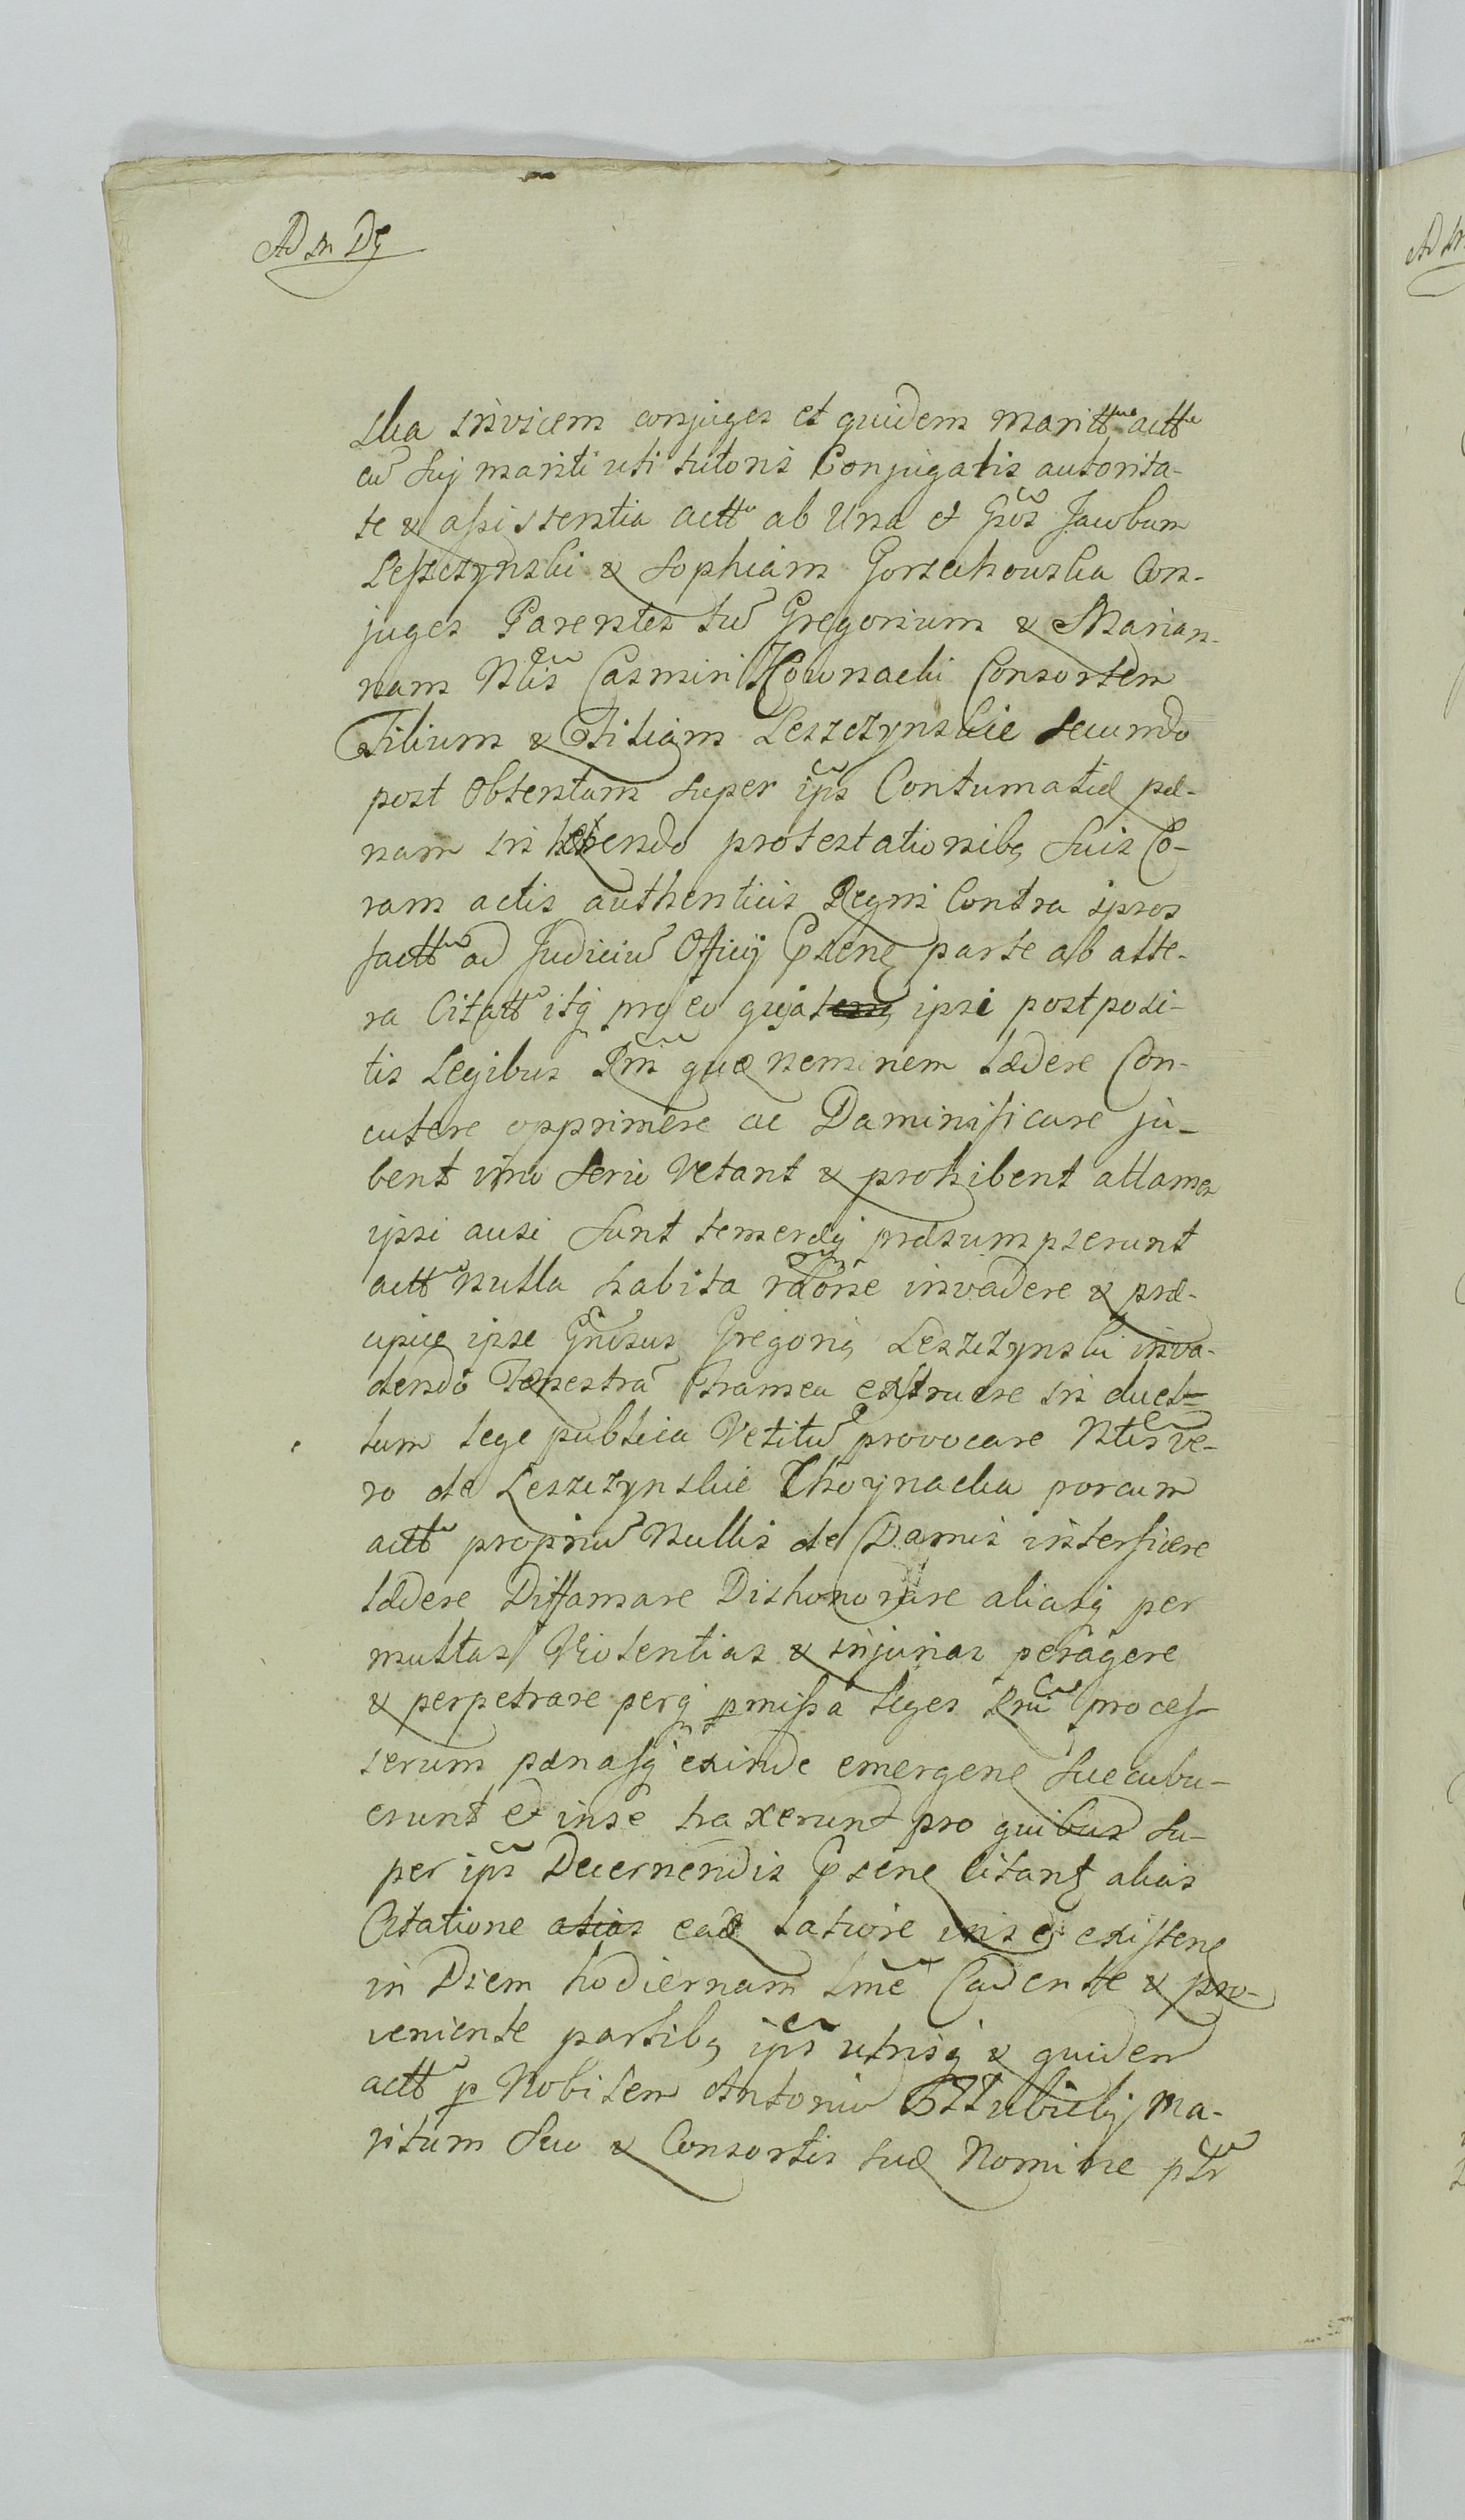 Ad m Dg
ska invicem conjuges et quidem maritt actt
cu Suj mariti uti tutoris Conjugalis autorita-
te & assistentia actt ab Una et Gsos Jacobum
Leszczynski & Sophiam Gorzchowska Con-
juges Parentes tu Gregorium & Marian-
nam Nlis Casmiri Consortem
Filium & Filiam Leszczynskie secundo
post obtentam super ips Contumatiæ pæ-
nam in protestationibq Suis Co-
ram actis authenticis Regni Contra ipsos
factt ad Judiciu Officij psenq parte ab alte-
ra Citatt itq ipsi postposi-
tis Legibus Rni quæ neminem lædere Con-
cutere opprimere ac Daminificare ju-
bent imo Serio Vetant & prohibent attamen
ipsi ausi Sunt temereq præsumpserunt
actt nulla habita raone invadere & præ-
cipue ipse Gnosus Gregoriq Leszczynski inva-
dendo Fenestra tramea extruere in duel=
lum lege publica Vetitu provocare Nlis ve-
ro de Leszczynskie Choynacka porcum
actt propriu Nullis de Damis interficere
lædere Diffamare Dishonorare aliasq per
multas Violentias & injurias peragere
& perpetrare perq pmissa leges Rni proces-
serum pænasq exinde emergenq Succubu-
erunt et in se traxerunt pro quibus Su-
per ips Decernendis psenq citanq alias
Citatione alias eadq latiore existenq
in Diem hodiernam lme Cadente & pro-
veniente partibq ips utrisq & quidem
actt p Nobilem Antoniu Ma-
ritum Suo & Consortis Suæ Nomine